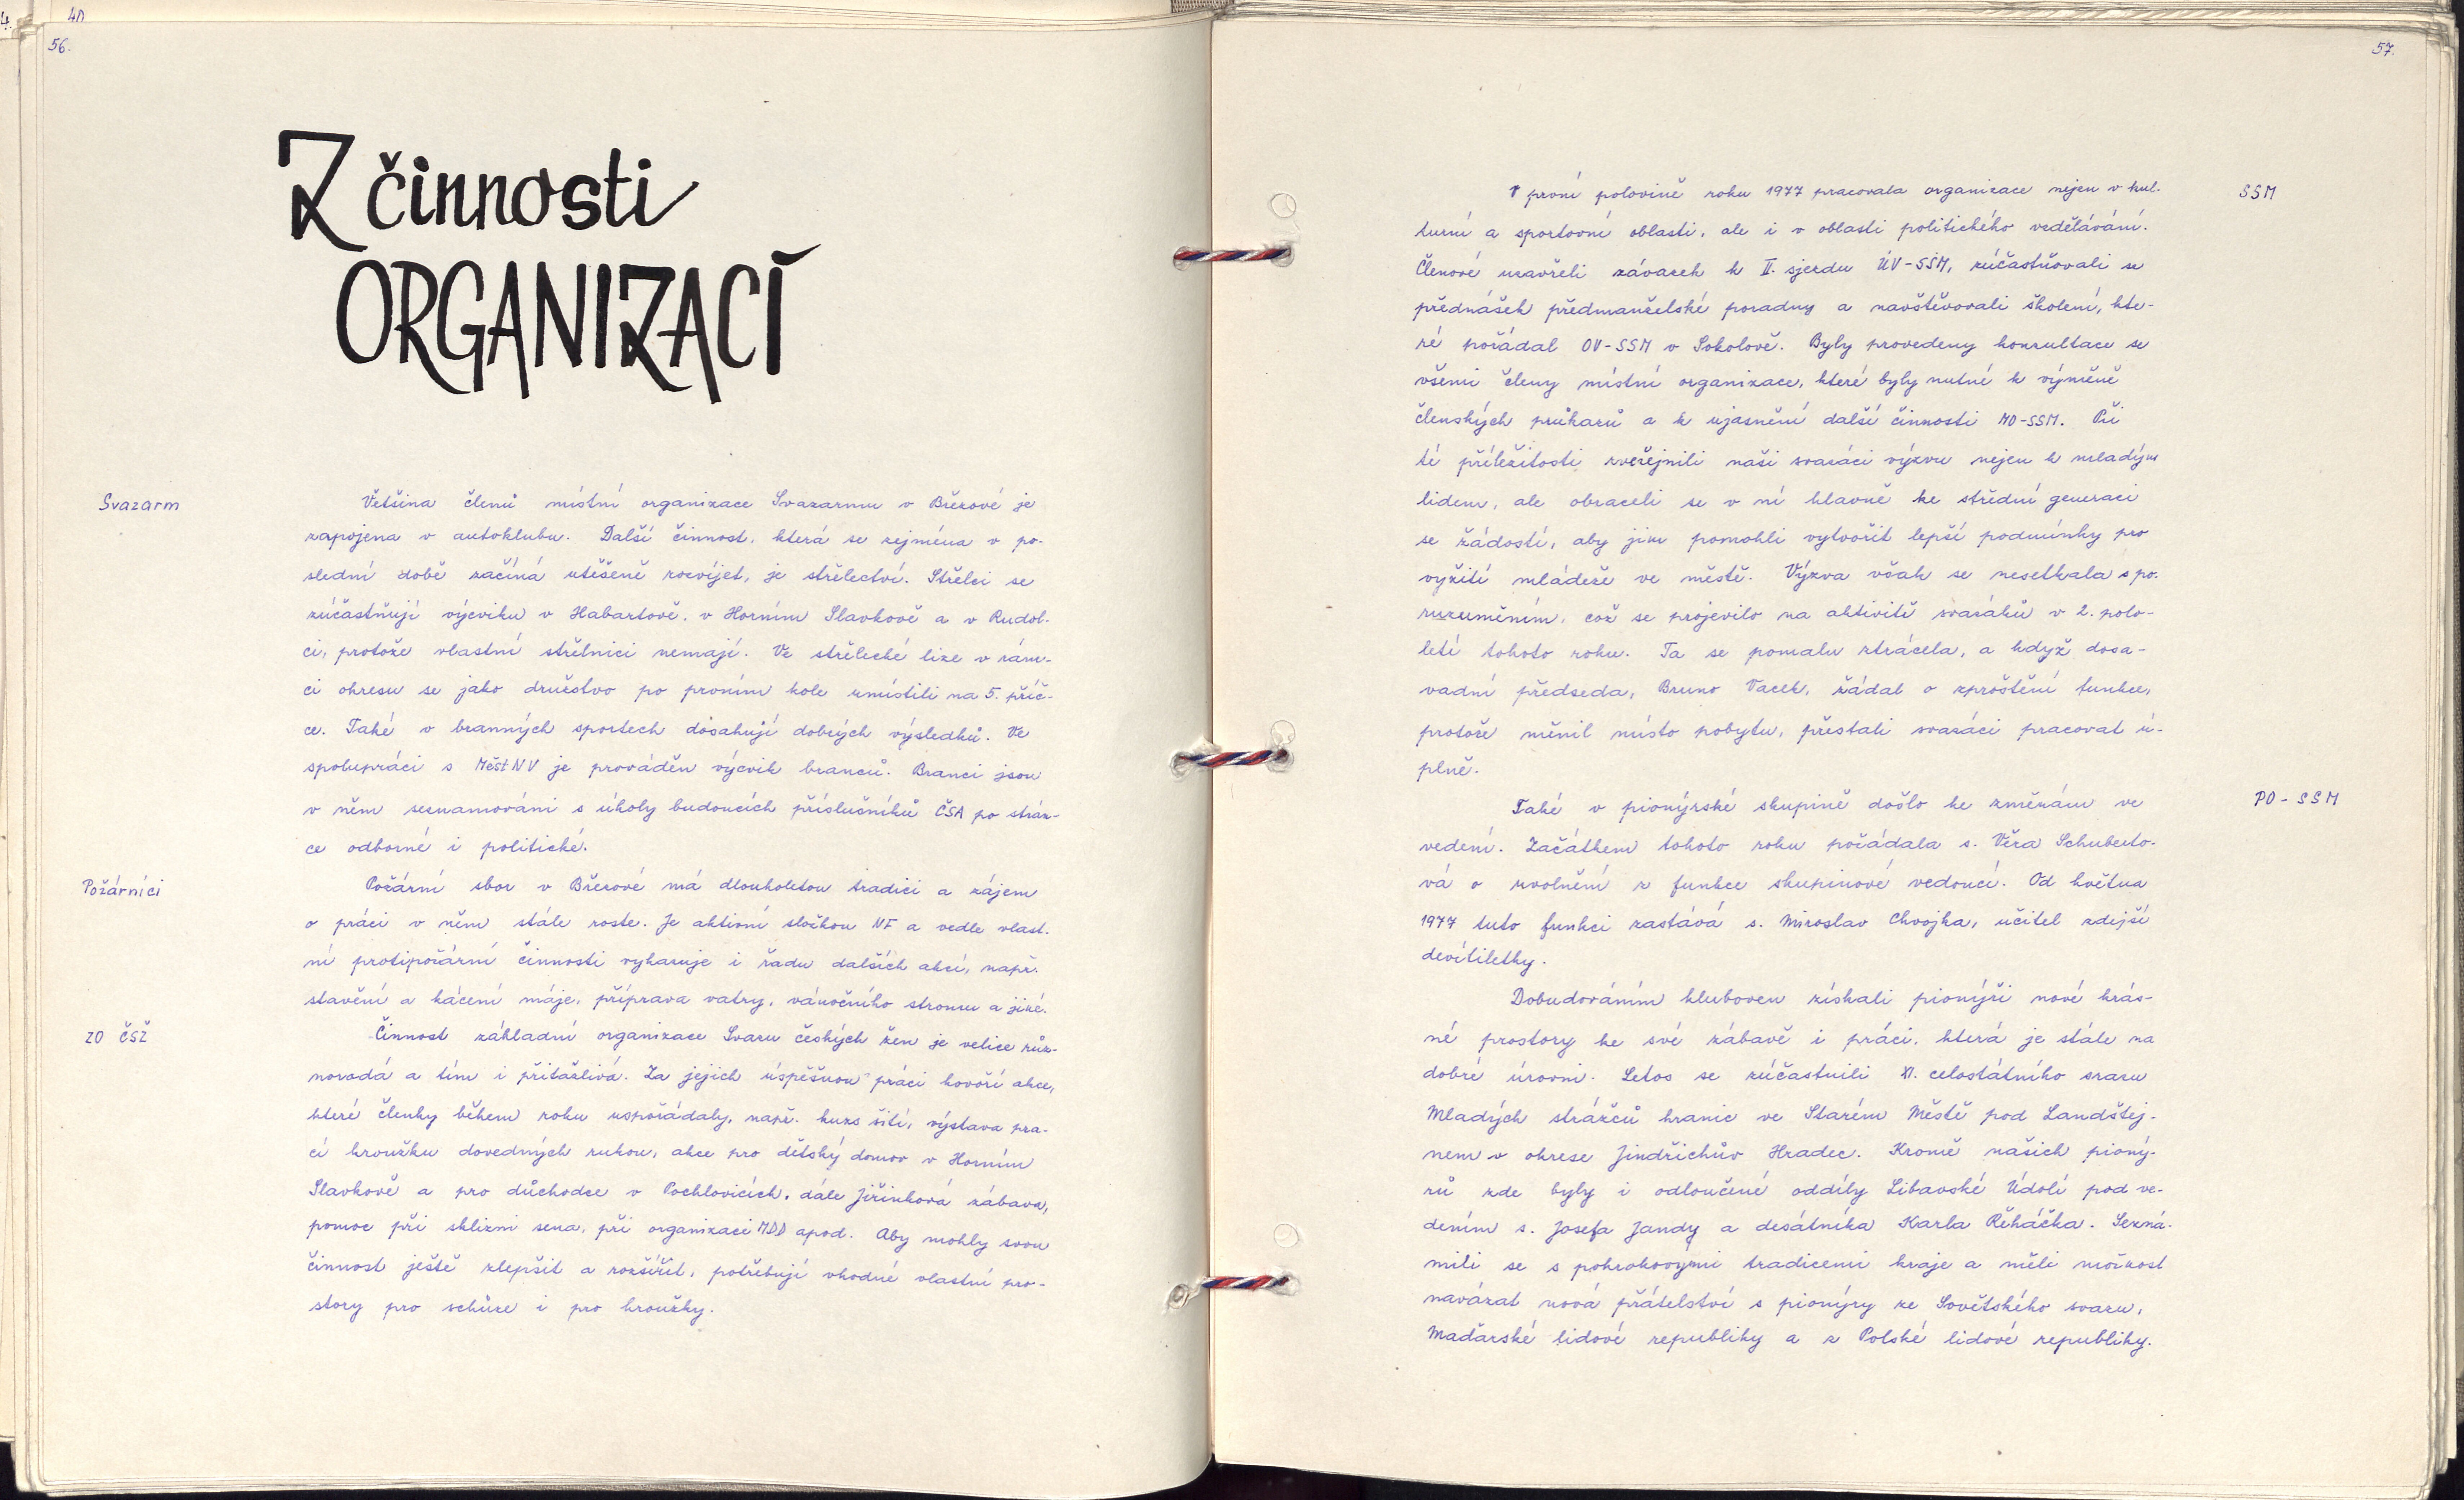 4.
40
56.
Z činnosti
ORGANIZACÍ
Svazarm
Většina členů místní organizace Svazarmu v Březové je
zapojena v autoklubu. Další činnost, která se zejména v po-
slední době začíná utěšeně rozvíjet, je střelectví. Střelci se
zúčastňují výcviku v Habartově, v Horním Slavkově a v Rudol-
ci, protože vlastní střelnici nemají. Ve střelecké lize v rám-
ci okresu se jako družstvo po prvním kole umístili na 5. příč-
ce. Také v branných sportech dosahují dobrých výsledků. Ve
spolupráci s MěstNV je prováděn výcvik branců. Branci jsou
v něm seznamováni s úkoly budoucích příslušníků ČSA po strán-
ce odborné i politické.
Požárníci
Požární sbor v Březové má dlouholetou tradici a zájem
o práci v něm stále roste. Je aktivní složkou NF a vedle vlast-
ní protipožární činnosti vykazuje i řadu dalších akcí, např.
stavění a kácení máje, příprava vatry, vánočního stromu a jiné.
ZO ČSŽ
Činnost základní organizace Svazu českých žen je velice růz-
norodá a tím i přitažlivá. Za jejich úspěšnou práci hovoří akce,
které členky během roku uspořádaly, např. kurs šití, výstava pra-
cí kroužku dovedných rukou, akce pro dětský domov v Horním
Slavkově a pro důchodce v Pochlovicích, dále Jiřinková zábava,
pomoc při sklizni sena, při organizaci MDD apod. Aby mohly svou
činnost ještě zlepšit a rozšířit, potřebují vhodné vlastní pro-
story pro schůze i pro kroužky.
57.
SSM
V první polovině roku 1977 pracovala organizace nejen v kul-
turní a sportovní oblasti, ale i v oblasti politického vzdělávání.
Členové uzavřeli závazek k II. sjezdu ÚV-SSM, zúčastňovali se
přednášek předmanželské poradny a navštěvovali školení, kte-
ré pořádal OV-SSM v Sokolově. Byly provedeny konzultace se
všemi členy místní organizace, které byly nutné k výměně
členských průkazů a k ujasnění další činnosti MO-SSM. Při
té příležitosti zveřejnili naši svazáci výzvu nejen k mladým
lidem, ale obraceli se v ní hlavně ke střední generaci
se žádostí, aby jim pomohli vytvořit lepší podmínky pro
vyžití mládeže ve městě. Výzva však se nesetkala s po-
rozuměním, což se projevilo na aktivitě svazáků v 2. polo-
letí tohoto roku. Ta se pomalu ztrácela, a když dosa-
vadní předseda, Bruno Vacek, žádal o zproštění funkce,
protože měnil místo pobytu, přestali svazáci pracovat ú-
plně.
PO - SSM
Také v pionýrské skupině došlo ke změnám ve
vedení. Začátkem tohoto roku požádala s. Věra Schuberto-
vá o uvolnění z funkce skupinové vedoucí. Od května
1977 tuto funkci zastává s. Miroslav Chvojka, učitel zdejší
devítiletky.
Dobudováním kluboven získali pionýři nové krás-
né prostory ke své zábavě i práci, která je stále na
dobré úrovni. Letos se zúčastnili XI. celostátního srazu
Mladých strážců hranic ve Starém Městě pod Landštej-
nem v okrese Jindřichův Hradec. Kromě našich pioný-
rů zde byly i odloučené oddíly Libavské Údolí pod ve-
dením s. Josefa Jandy a desátníka Karla Řeháčka. Sezná-
mili se s pokrokovými tradicemi kraje a měli možnost
navázat nová přátelství s pionýry ze Sovětského svazu,
Maďarské lidové republiky a z Polské lidové republiky.